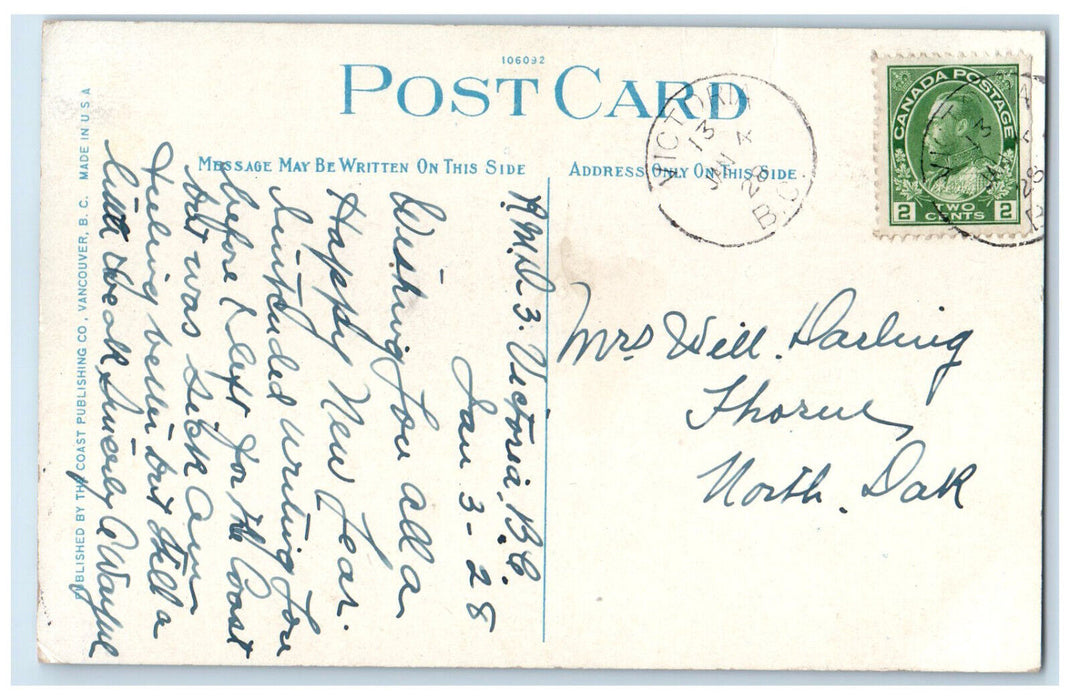 106092
POST CARD
MESSAGE MAY BE WRITTEN ON THIS SIDE
ADDRESS ONLY ON THIS SIDE
VICTORIA
13
JAN 4
28
B.C.
CANADA POSTAGE
2 TWO CENTS 2
PUBLISHED BY THE COAST PUBLISHING CO., VANCOUVER, B. C. MADE IN U S A
3. Victoria, B.C.
Jan 3 - 28
Wishing you all a
Happy New Year.
Intended writing you
before I left for the Coast
but was sick am
feeling better but still a
little weak Sincerely
Mrs Will. Darling
Thorne
North. Dak